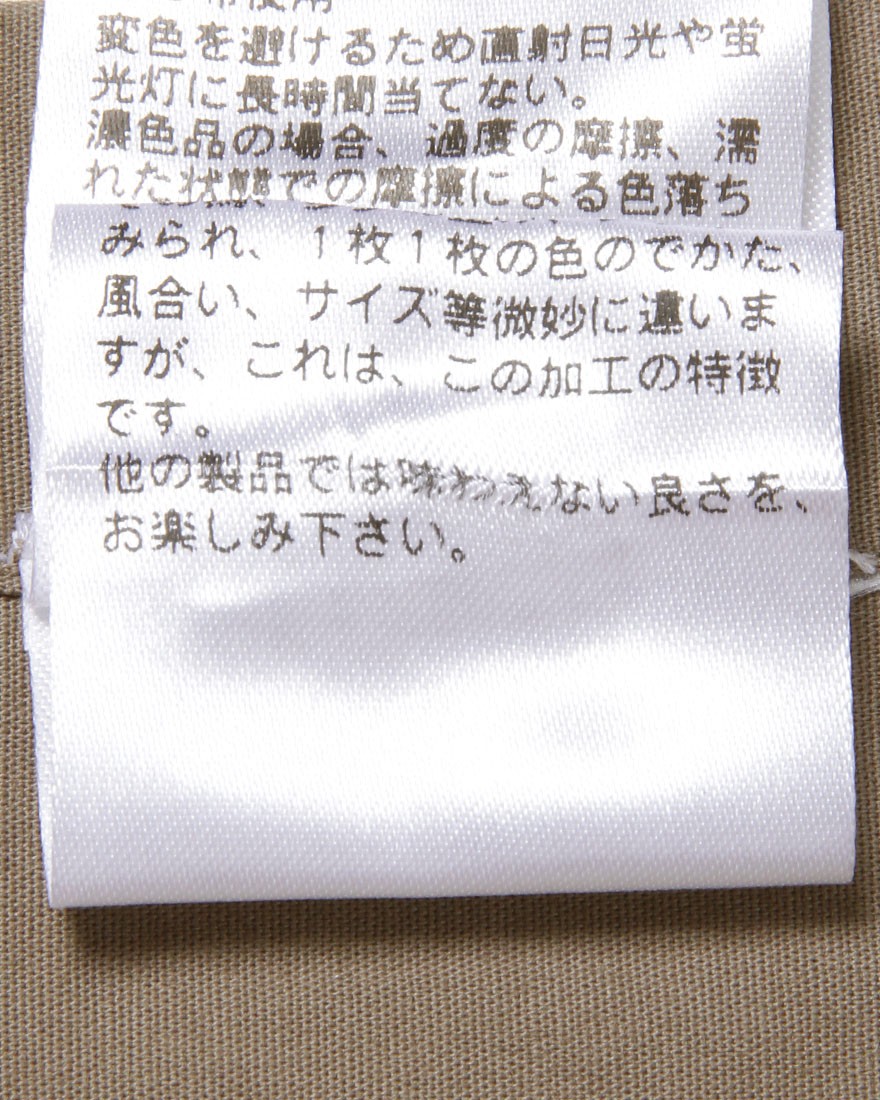 変色を避けるため直射日光や蛍
光灯に長時間当てない。
濃色品の場合、過度の摩擦、濡
れた状態での摩擦による色落ち
みられ、1枚1枚の色のでかた、
風合い、サイズ等微妙に違いま
すが、これは、この加工の特徴
です。
他の製品では味わえない良さを、
お楽しみ下さい。